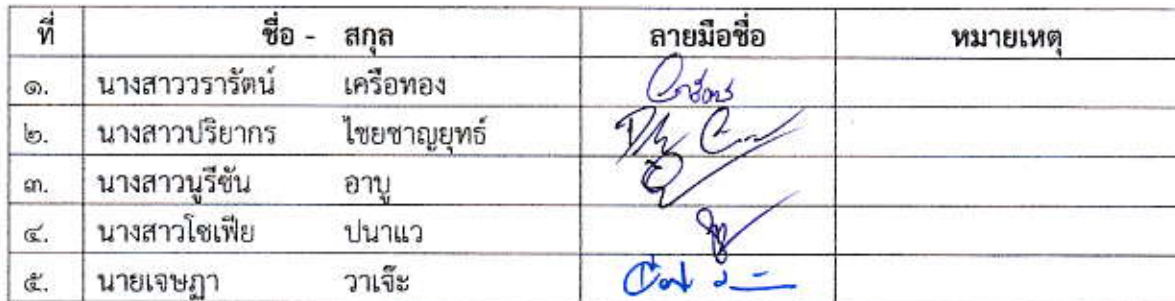 ที่ ชื่อ - สกุล ลายมือชื่อ หมายเหตุ
๑. นางสาววรารัตน์ เครือทอง
๒. นางสาวปริยากร ไชยชาญยุทธ์
๓. นางสาวนูรีซัน อาบู
๔. นางสาวโซเฟีย ปนาแว
๕. นายเจษฎา วาเจ๊ะ